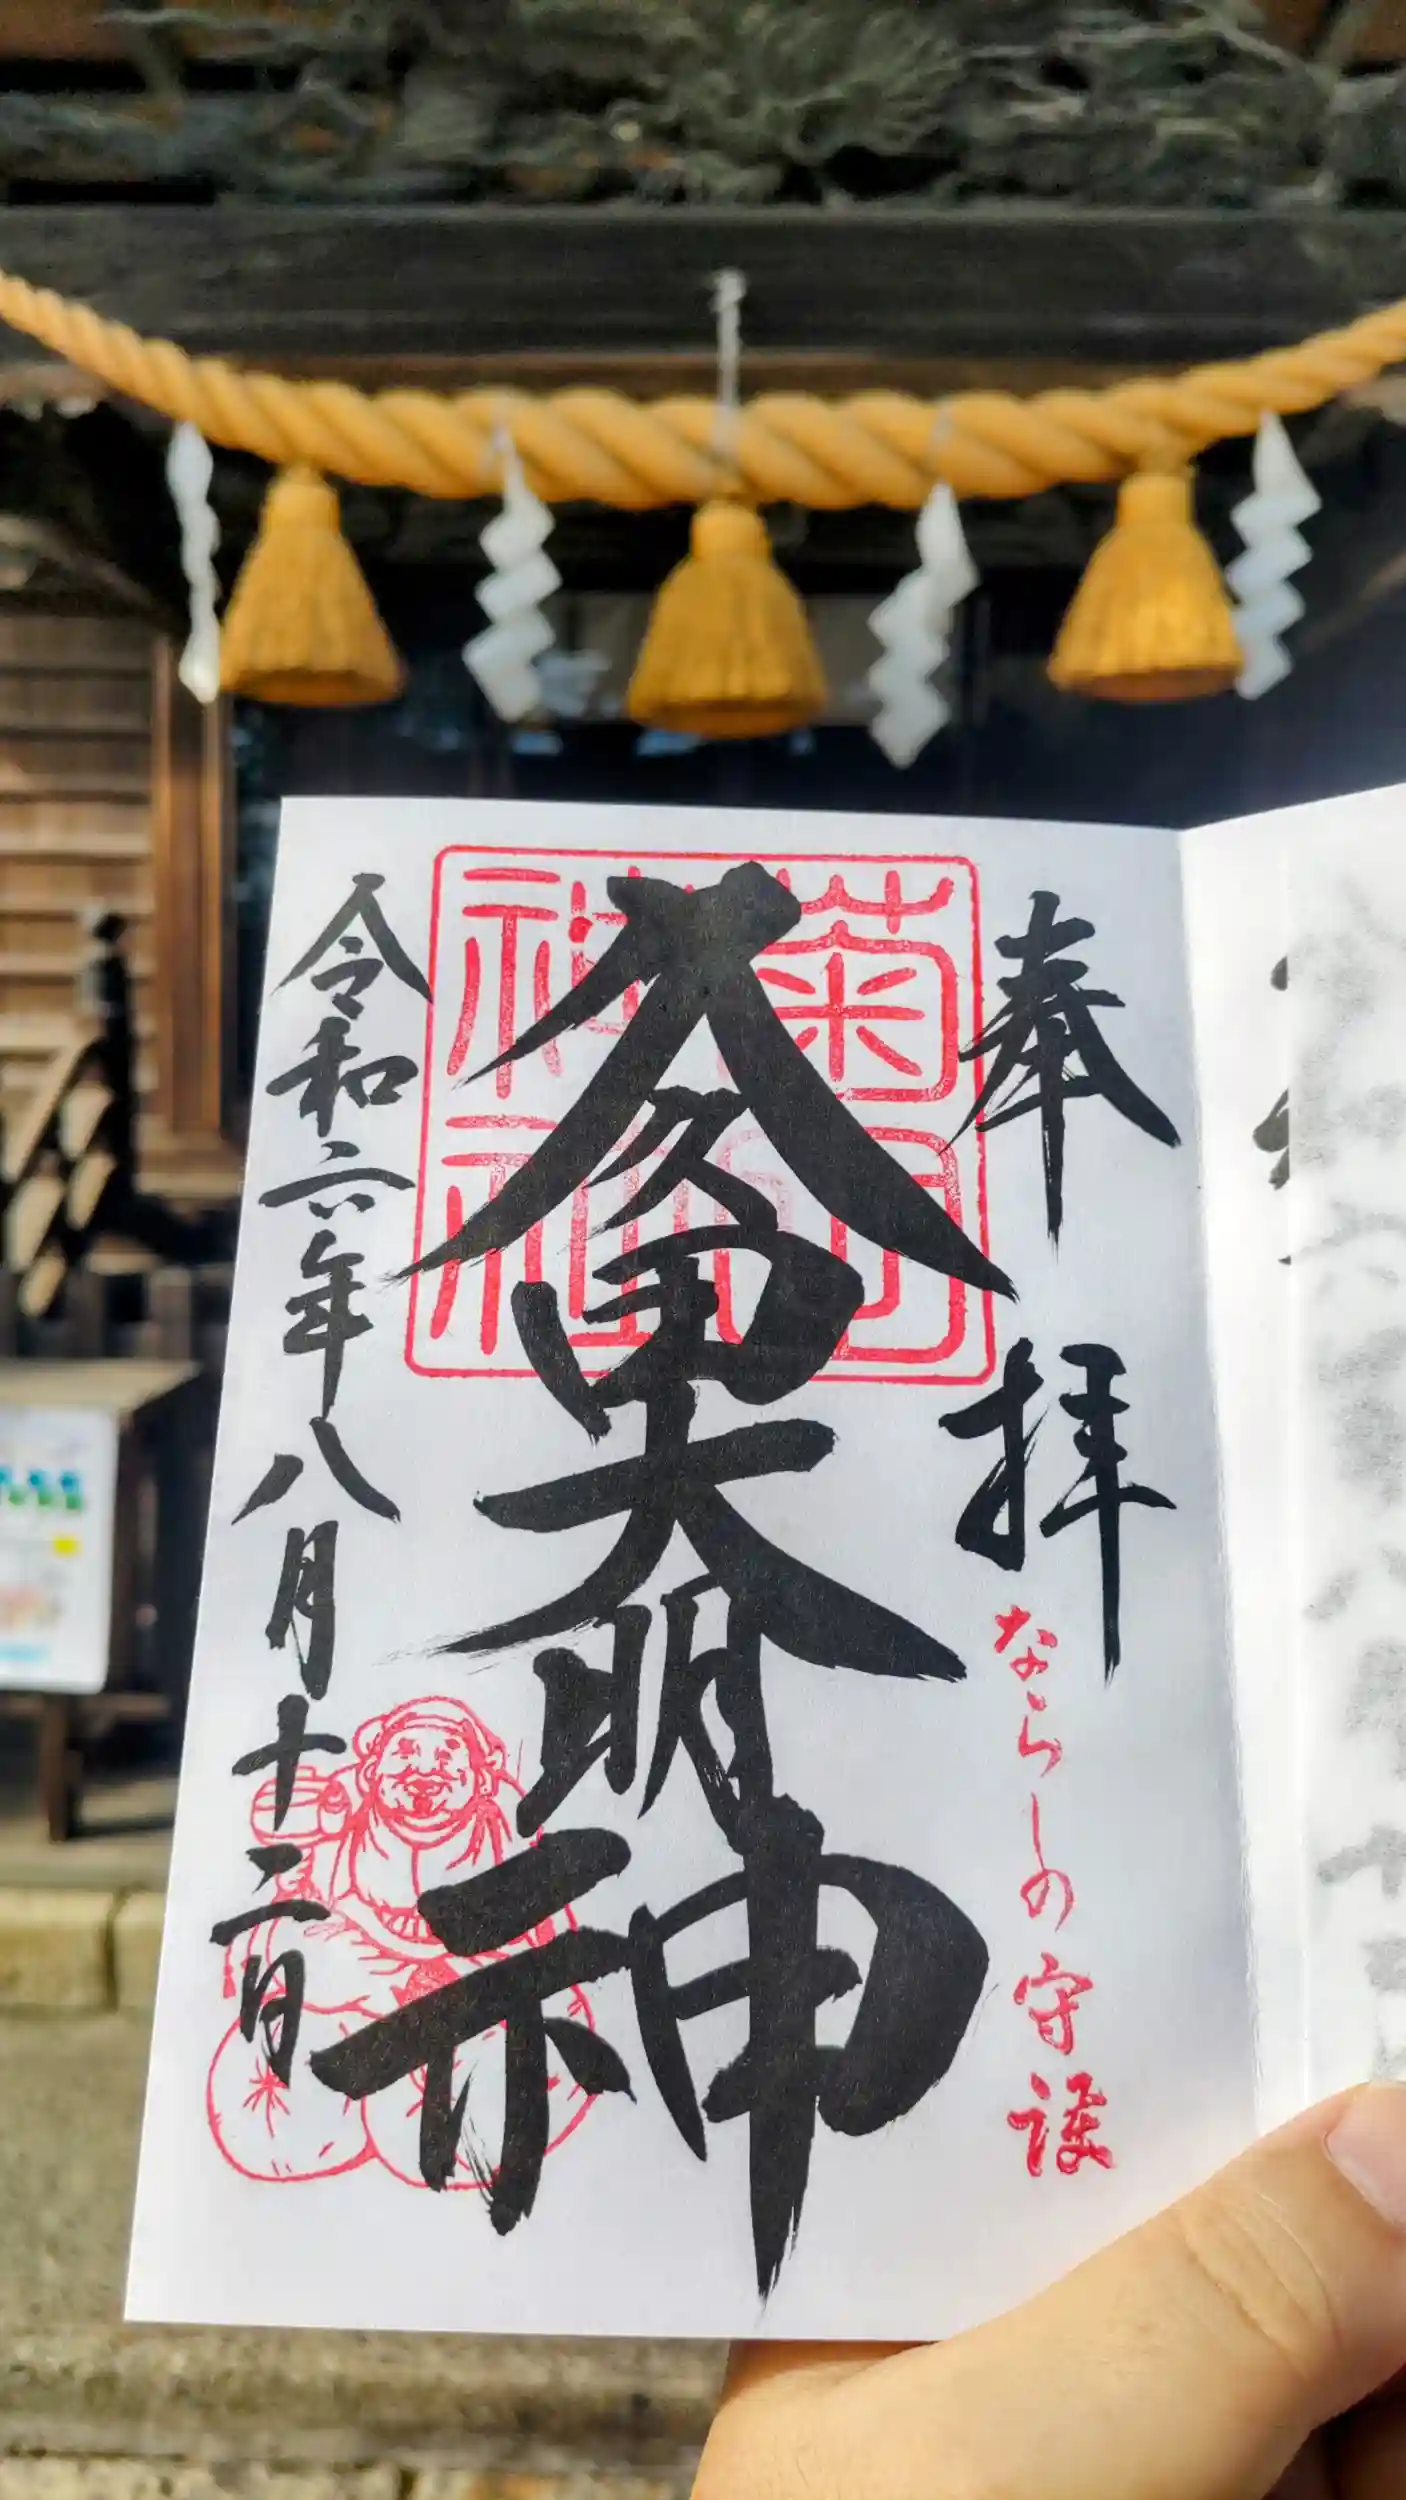 奉拝
ならしの守護
菊田
神社
久久田大明神
令和六年八月十二日